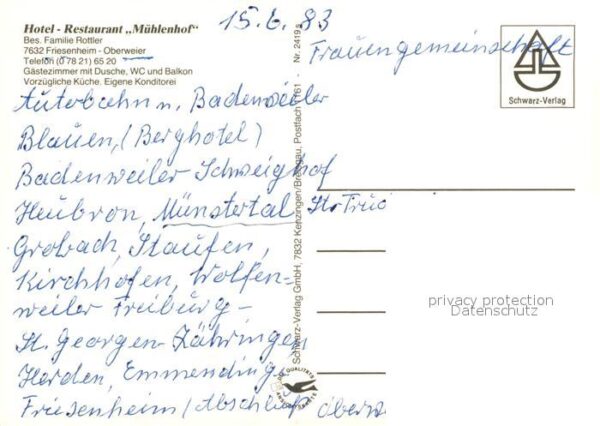 Hotel - Restaurant „Mühlenhof"
Bes. Familie Rottler
7632 Friesenheim - Oberweier
Telefon (0 78 21) 65 20
Gästezimmer mit Dusche, WC und Balkon
Vorzügliche Küche. Eigene Konditorei
15.6.83
Frauengemeinschaft
Autobahn n. Badenweiler
Blauen, (Berghotel)
Badenweiler Schweighof
Heubron, Münstertal, St. Trud
Grobach, Staufen,
Kirchhofen, Wolfen-
weiler Freiburg -
St. Georgen-Zähringen
Herden, Emmending
Friesenheim (Abschluß Oberw
Schwarz-Verlag GmbH, 7832 Kenzingen/Breisgau, Postfach 1161 · Nr. 2419 s
Schwarz-Verlag
QUALITÄTS
privacy protection
Datenschutz